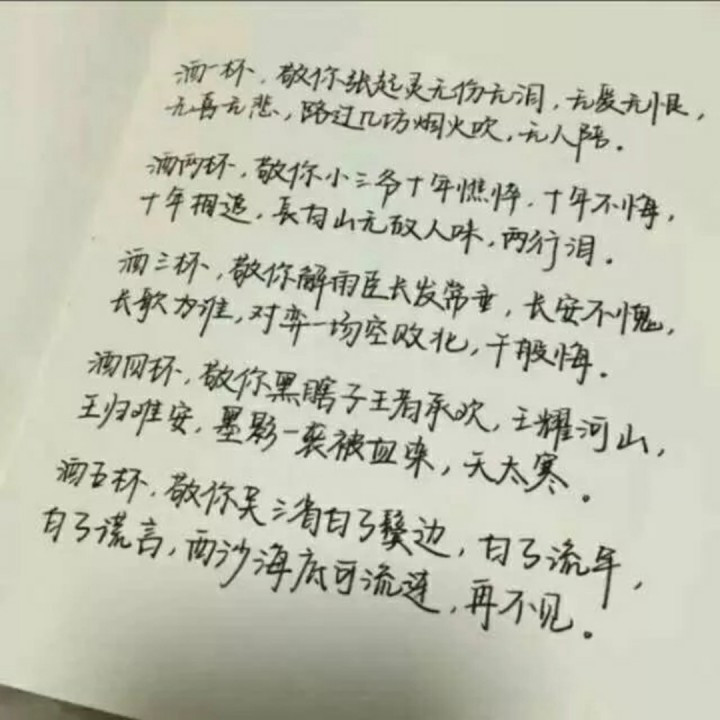 酒一杯，敬你张起灵无伤无泪，无爱无恨，
无喜无悲，路过几坊烟火吹，无人陪。
酒两杯，敬你小三爷十年憔悴，十年不悔，
十年相追，長白山无故人味，两行泪。
酒三杯，敬你解雨臣长发常垂，长安不愧，
长歌为谁，对弈一场空败北，千般悔。
酒四杯，敬你黑瞎子王者承欢，王耀河山，
王归难安，墨影一袭被血染，天太寒。
酒五杯，敬你吴三省白了鬓边，白了流年，
白了谎言，西沙海底可流连，再不见。